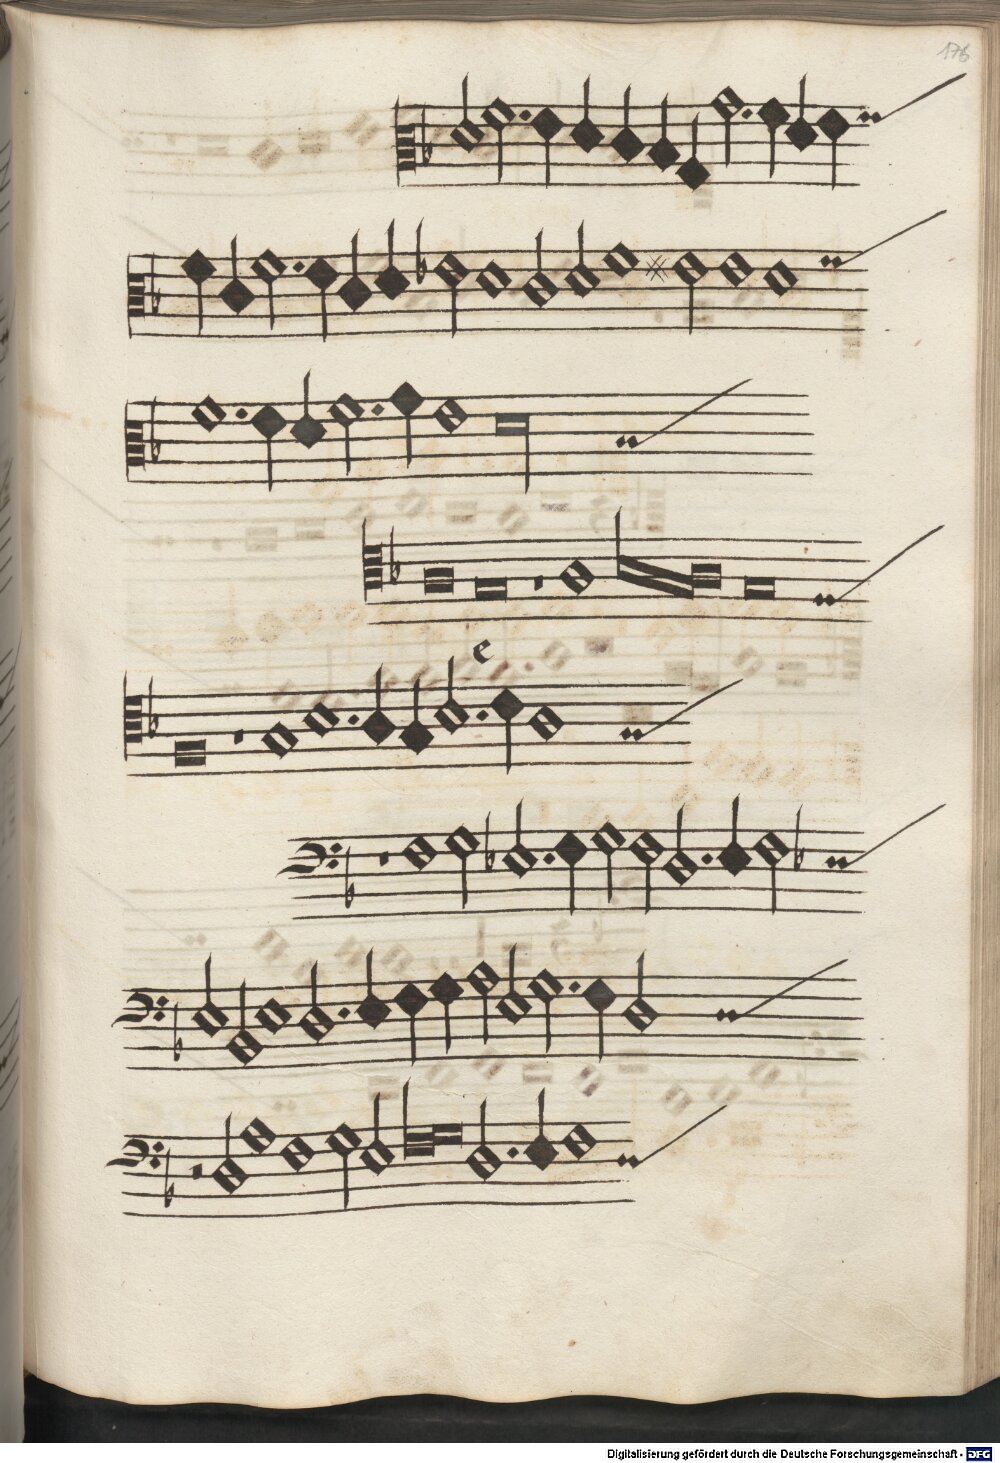 176
e
Digitalisierung gefördert durch die Deutsche Forschungsgemeinschaft - DFG